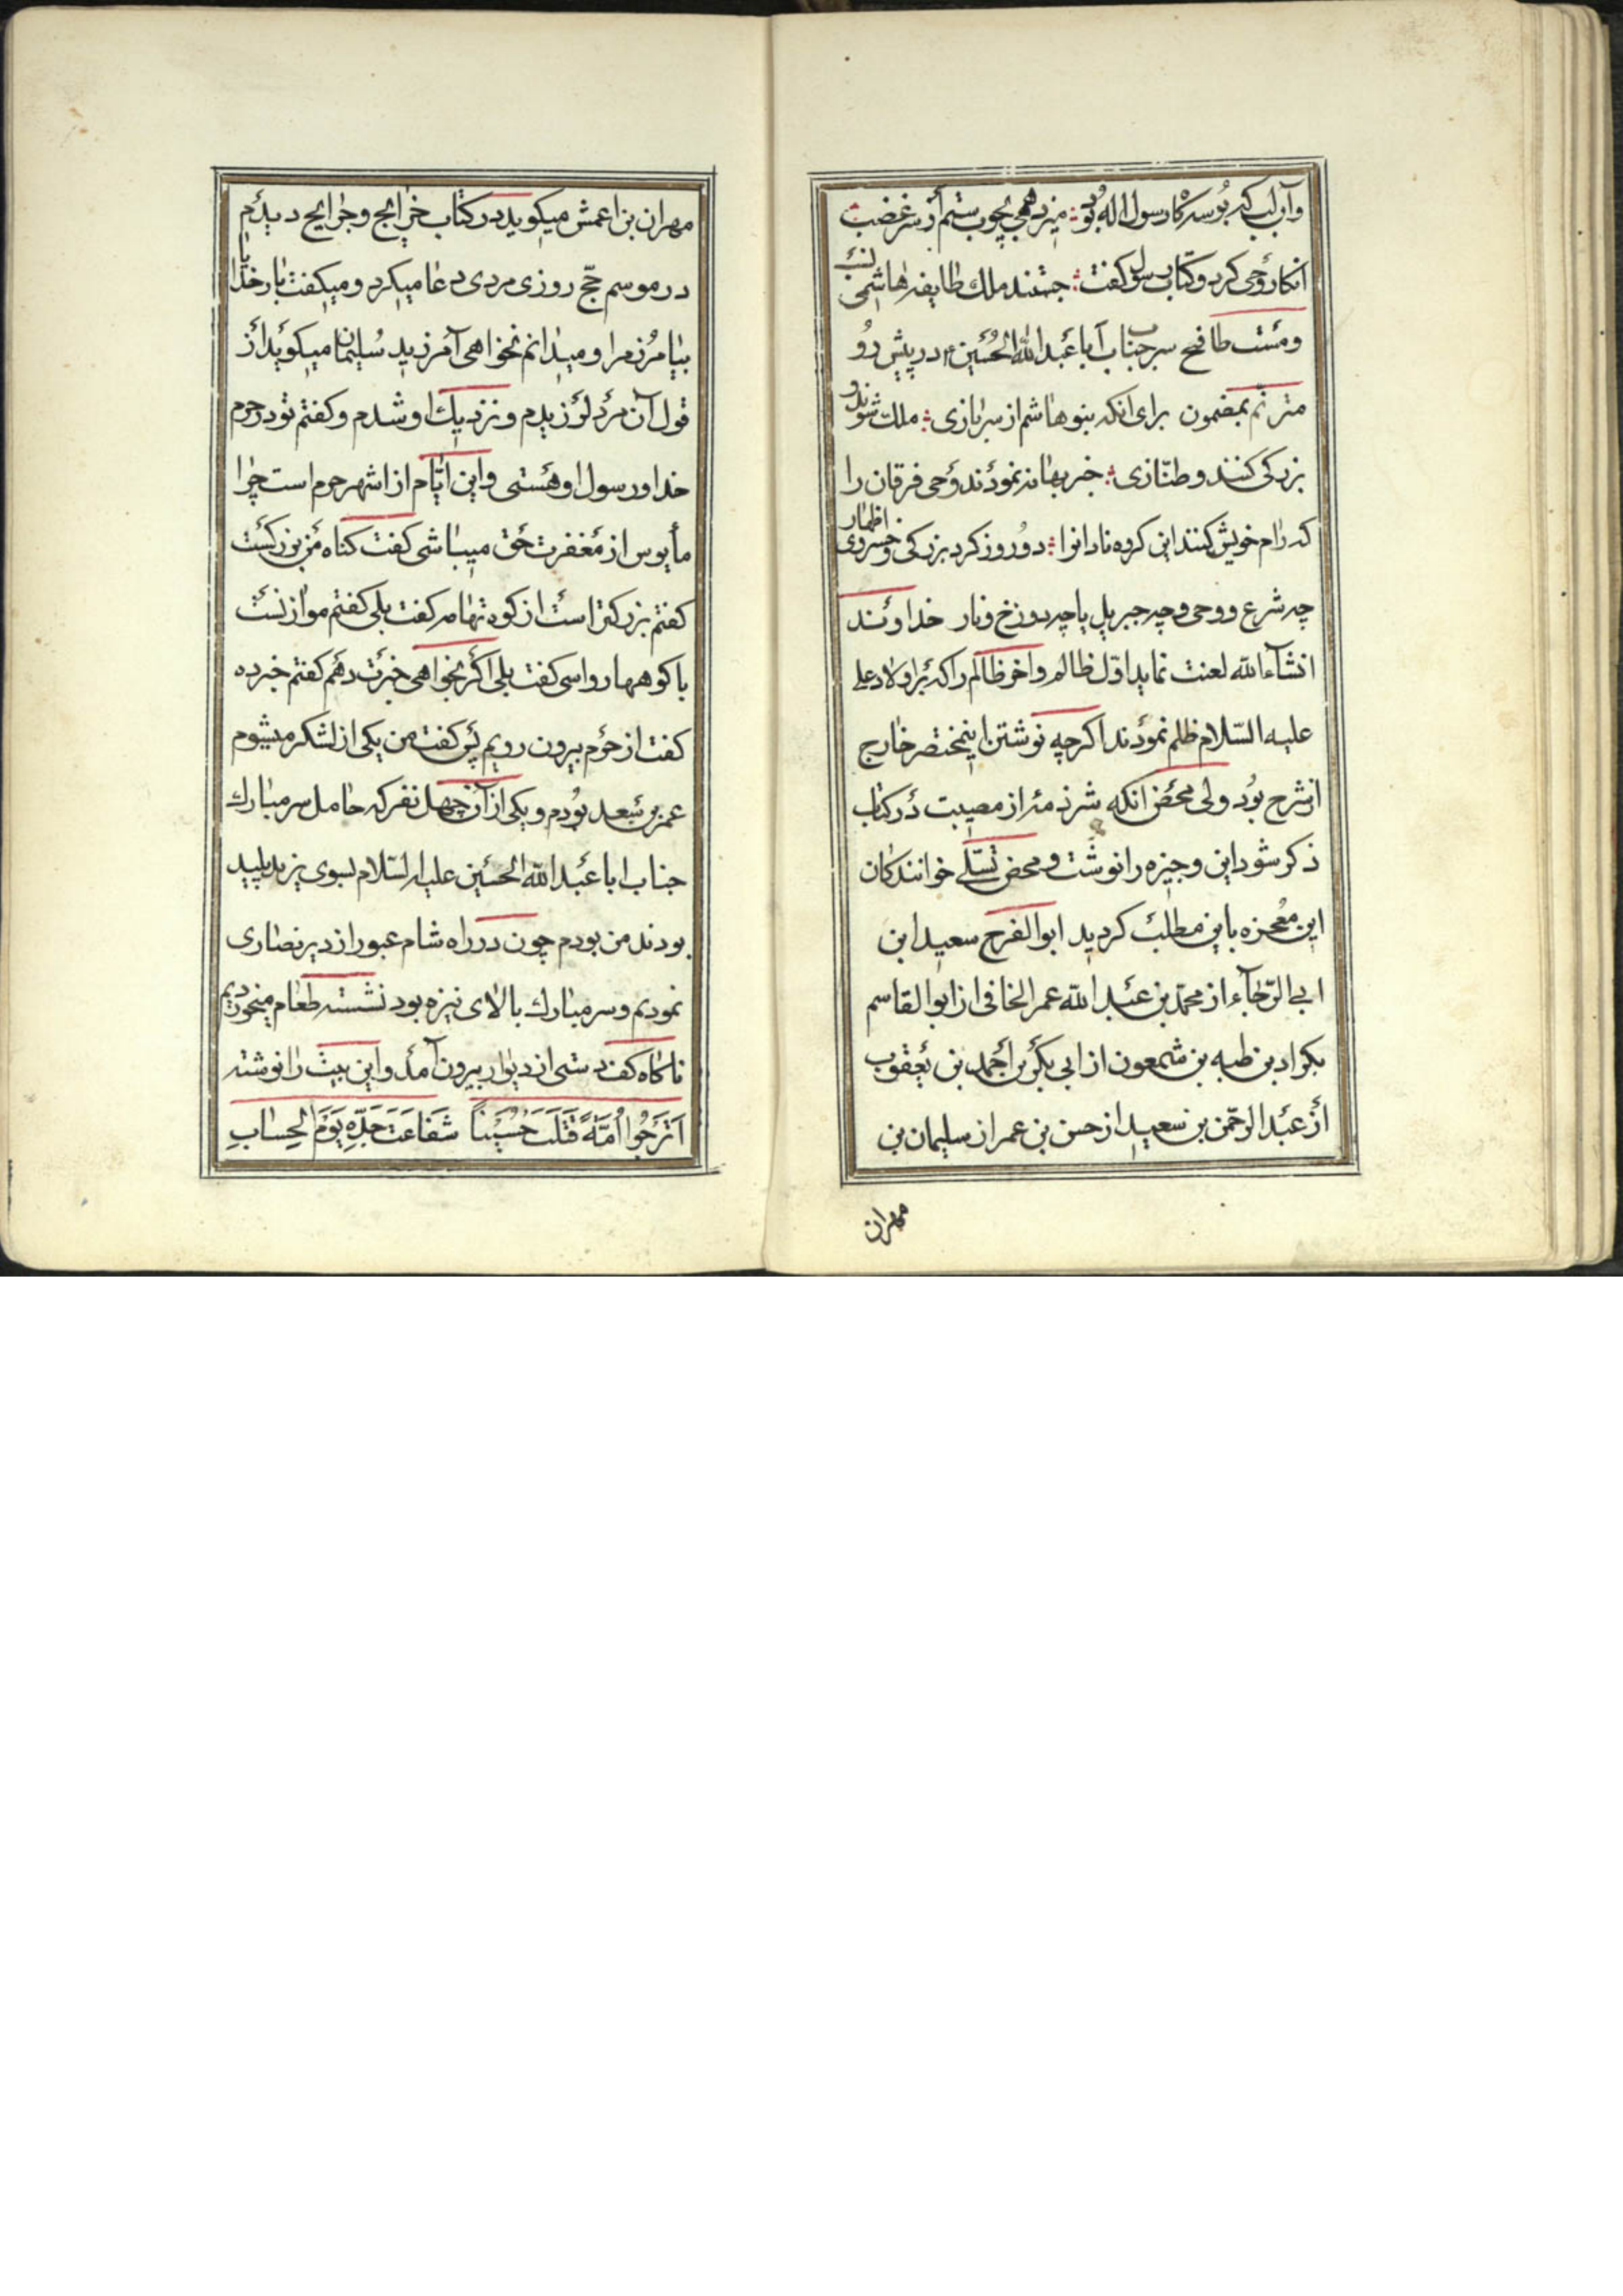 وآن لب که بوسه‌گاه رسول اله بود ؛ میزد همی بچوب ستم از سر غضب
انکار وحی کرد و کتاب رسول گفت ؛ جستند ملك طایفه هاشمی نسب
ومست طافح سر جناب ابا عبد الله الحسین ع در پیش رو
مترنّم بمضمون برای انکه بنو هاشم از سربازی ؛ ملك شوند و
بزرکی کنند وطنّازی ؛ خبر بهانه نمودند وحی فرقان را
که رام خویش کنند این کروه نادانرا ؛ دو روز کرد بزرکی وخسروی اظهار
چه شرع ووحی وچه جبریل یا چه دوزخ ونار خداوند
انشآءالله لعنت نماید اوّل ظالم واخر ظالم را که بر اولاد علی
علیه السّلام ظلم نمودند اکرچه نوشتن اینمختصر خارج
از شرح بود ولی محض انکه شرذمه از مصیبت در کتاب
ذکر شود این وجیزه را نوشت ومحض تسلّی خوانندکان
این معجزه باین مطلب کردید ابوالفرج سعید ابن
ابی الرّجآء از محمّد بن عبد الله عمر الخافی از ابوالقاسم
بکراد بن طبه بن شمعون از ابی بکر بن أحمد بن یعقوب
از عبد الرحمن بن سعید از حسن بن عمر از سلیمان بن
مهران
مهران بن اعمش میکوید در کتاب خرایج وجرایح دیدم
در موسم حجّ روزی مردی دعا میکرد ومیکفت بار خدایا
بیامرز مرا ومیدانم نخواهی آمرزید سلیمان میکوید از
قول آن مرد لرزیدم ونزدیك او شدم وکفتم تو در حرم
خدا ورسول او هستی واین ایّام از اشهر حرم است چرا
مأیوس از مغفرت حق میباشی کفت کناه من بزرکست
کفتم بزرکتر است از کوه تهامه کفت بلی کفتم موازنست
با کوههای رواسی کفت بلی اکر بخواهی خبرت دهم کفتم خبر ده
کفت از حرم بیرون رویم پس کفت من یکی از لشکر میشوم
عمر بن سعد بودم ویکی از آن چهل نفر که حامل سر مبارك
جناب ابا عبد الله الحسین علیه السّلام بسوی یزید پلید
بودند من بودم چون در راه شام عبور از دیر نصاری
نمودیم وسر مبارك بالای نیزه بود نشسته طعام میخوردیم
ناکاه کف دستی از دیوار بیرون آمد واین بیت را نوشته
اَتَرجُوا اُمَّةً قَتَلَت حُسَیناً شَفاعَتَ جَدِّهِ یَومَ الحِسابِ